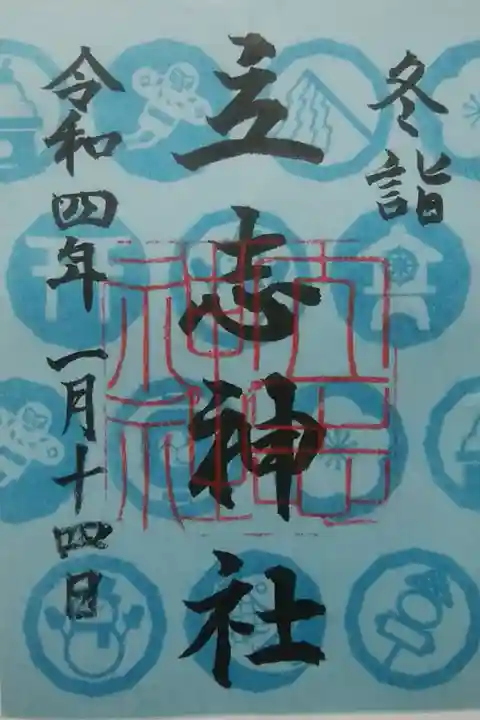 冬詣
立志神社
令和四年一月十四日
立志神社